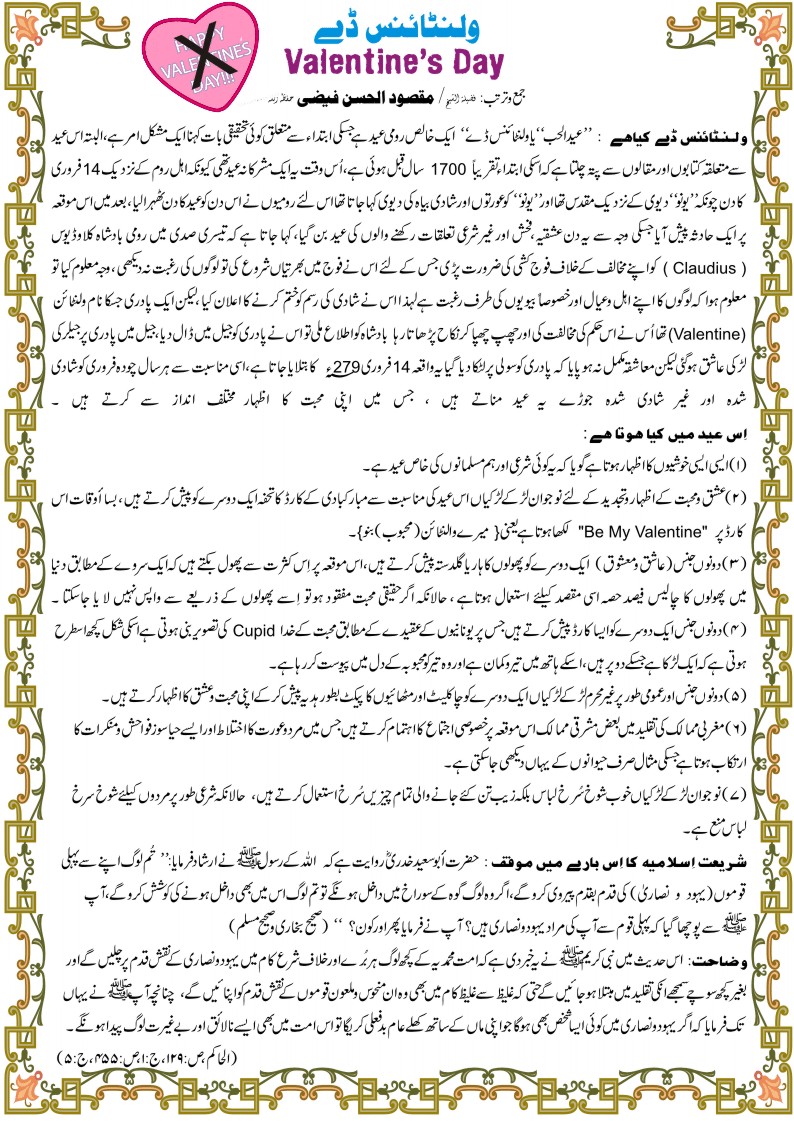 HAPPY
VALENTINES
DAY!!!
ولنٹائنس ڈے
Valentine's Day
جمع وترتیب: فضیلۃ الشیخ / مقصود الحسن فیضی حفظہ
ولنٹائنس ڈے کیاھے : ’’عید الحب‘‘ یا ولنٹائنس ڈے‘‘ ایک خالص رومی عید ہے جسکی ابتداء سے متعلق کوئی تحقیقی بات کہنا ایک مشکل امر ہے، البتہ اس عید
سے متعلقہ کتابوں اور مقالوں سے پتہ چلتا ہے کہ اسکی ابتداء تقریباً 1700 سال قبل ہوئی ہے، اُس وقت یہ ایک مشرکانہ عید تھی کیونکہ اہل روم کے نزدیک 14 فروری
کا دن چونکہ ’’یونو‘‘ دیوی کے نزدیک مقدس تھا اور ’’یونو‘‘ کو عورتوں اور شادی بیاہ کی دیوی کہا جاتا تھا اس لئے رومیوں نے اس دن کو عید کا دن ٹھہرالیا، بعد میں اس موقعہ
پر ایک حادثہ پیش آیا جسکی وجہ سے یہ دن عشقیہ، فحش اور غیر شرعی تعلقات رکھنے والوں کی عید بن گیا، کہا جاتا ہے کہ تیسری صدی میں رومی بادشاہ کلاوڈیوس
( Claudius ) کو اپنے مخالف کے خلاف فوج کشی کی ضرورت پڑی جس کے لئے اس نے فوج میں بھرتیاں شروع کی تو لوگوں کی رغبت نہ دیکھی، وجہ معلوم کیا تو
معلوم ہوا کہ لوگوں کا اپنے اہل وعیال اور خصوصاً بیویوں کی طرف رغبت ہے لہذا اس نے شادی کی رسم کو ختم کرنے کا اعلان کیا، لیکن ایک پادری جسکا نام ولنٹائن
(Valentine) تھا اُس نے اس حکم کی مخالفت کی اور چھپ چھپا کر نکاح پڑھاتا رہا بادشاہ کو اطلاع ملی تو اس نے پادری کو جیل میں ڈال دیا، جیل میں پادری پر جیلر کی
لڑکی عاشق ہوگئی لیکن معاشقہ مکمل نہ ہو پایا کہ پادری کو سولی پر لٹکا دیا گیا یہ واقعہ 14 فروری 279ء کا بتلایا جاتا ہے، اسی مناسبت سے ہر سال چودہ فروری کو شادی
شدہ اور غیر شادی شدہ جوڑے یہ عید مناتے ہیں ، جس میں اپنی محبت کا اظہار مختلف انداز سے کرتے ہیں ۔
اِس عید میں کیا ھوتا ھے :
(۱) ایسی ایسی خوشیوں کا اظہار ہوتا ہے گویا کہ یہ کوئی شرعی اور ہم مسلمانوں کی خاص عید ہے۔
(۲) عشق ومحبت کے اظہار و تجدید کے لئے نوجوان لڑکے لڑکیاں اس عید کی مناسبت سے مبارکبادی کے کارڈ کا تحفہ ایک دوسرے کو پیش کرتے ہیں، بسا أوقات اس
کارڈ پر "Be My Valentine" لکھا ہوتا ہے یعنی { میرے والنٹائن (محبوب) بنو}۔
(۳) دونوں جنس (عاشق ومعشوق) ایک دوسرے کو پھولوں کا ہار یا گلدستہ پیش کرتے ہیں، اس موقعہ پر اِس کثرت سے پھول بکتے ہیں کہ ایک سروے کے مطابق دنیا
میں پھولوں کا چالیس فیصد حصہ اسی مقصد کیلئے استعمال ہوتا ہے ، حالانکہ اگر حقیقی محبت مفقود ہو تو اِسے پھولوں کے ذریعے سے واپس نہیں لا یا جاسکتا ۔
(۴) دونوں جنس ایک دوسرے کو ایسا کارڈ پیش کرتے ہیں جس پر یونانیوں کے عقیدے کے مطابق محبت کے خدا Cupid کی تصویر بنی ہوتی ہے اسکی شکل کچھ اسطرح
ہوتی ہے کہ ایک لڑکا ہے جسکے دو پر ہیں، اسکے ہاتھ میں تیر وکمان ہے اور وہ تیر کو محبوبہ کے دل میں پیوست کر رہا ہے۔
(۵) دونوں جنس اور عمومی طور پر غیر محرم لڑکے لڑکیاں ایک دوسرے کو چاکلیٹ اور مٹھائیوں کا پیکٹ بطور ہدیہ پیش کر کے اپنی محبت وعشق کا اظہار کرتے ہیں ۔
(۶) مغربی ممالک کی تقلید میں بعض مشرقی ممالک اس موقعہ پر خصوصی اجتماع کا اہتمام کرتے ہیں جس میں مرد و عورت کا اختلاط اور ایسے حیا سوز فواحش ومنکرات کا
ارتکاب ہوتا ہے جسکی مثال صرف حیوانوں کے یہاں دیکھی جاسکتی ہے۔
(۷) نوجوان لڑکے لڑکیاں خوب شوخ سُرخ لباس بلکہ زیب تن کئے جانے والی تمام چیزیں سُرخ استعمال کرتے ہیں، حالانکہ شرعی طور پر مردوں کیلئے شوخ سرخ
لباس منع ہے۔
شریعت اِسلامیه کا اِس بارے میں موقف : حضرت أبو سعید خدریؓ روایت ہے کہ اللہ کے رسول ﷺ نے ارشاد فرمایا: ’’ تُم لوگ اپنے سے پہلی
قوموں (یہود و نصاریٰ) کی قدم بقدم پیروی کروگے، اگر وہ لوگ گوہ کے سوراخ میں داخل ہونگے تو تم لوگ اس میں بھی داخل ہونے کی کوشش کروگے، آپ
ﷺ سے پوچھا گیا کہ پہلی قوم سے آپ کی مراد یہود ونصاری ہیں؟ آپ نے فرمایا پھر اور کون؟ ‘‘ (صحیح بخاری وصحیح مسلم)
وضاحت: اس حدیث میں نبی کریم ﷺ نے یہ خبر دی ہے کہ امت محمدیہ کے کچھ لوگ ہر بُرے اور خلاف شرع کام میں یہود ونصاری کے نقش قدم پر چلیں گے اور
بغیر کچھ سوچے سمجھے انکی تقلید میں مبتلا ہو جائیں گے حتی کہ غلیظ سے غلیظ کام میں بھی وہ ان منحوس وملعون قوموں کے نقش قدم کو اپنائیں گے، چنانچہ آپ ﷺ نے یہاں
تک فرمایا کہ اگر یہود ونصاری میں کوئی ایسا شخص بھی ہوگا جو اپنی ماں کے ساتھ کھلے عام بدفعلی کریگا تو اس امت میں بھی ایسے نالائق اور بے غیرت لوگ پیدا ہونگے ۔
(الحاکم، ص: ۱۲۹، ج: ۱، ص: ۴۵۵، ج: ۵)